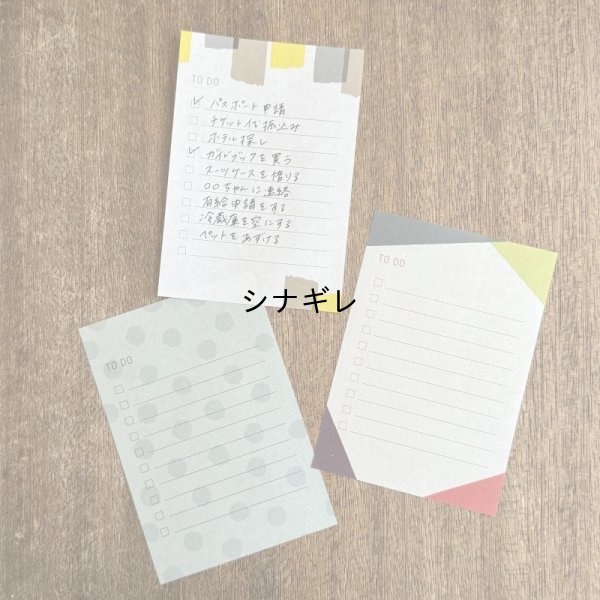 TO DO
パスポート申請
チケット代振込み
ホテル探し
ガイドブックを買う
スーツケースを借りる
〇〇ちゃんに連絡
有給申請をする
冷蔵庫を空にする
ペットをあずける
シナギレ
TO DO
TO DO